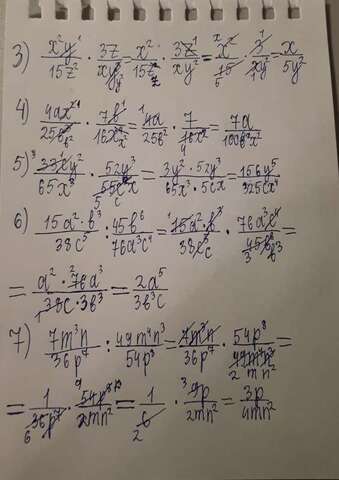 3) x²y¹/15z² · 3z/xy³ = x²/15z² · 3z¹/xy² = x²/15 · 3¹/xy² = x/5y²
4) 4ax²/25b² · 7b¹/16x⁴ = 4a/25b² · 7/16x² = 7a/100b²x²
5) 33cy²/65x³ · 52y³/55c²x = 3y²·52y³/65x³·5cx = 156y⁵/325cx⁴
6) 15a²·b³/38c⁵ : 45b⁶/76a³c⁴ = 15a²·b³/38c⁵ · 76a³c⁴/45b⁶ =
= a²·76a³/38c·3b³ = 2a⁵/3b³c
7) 7m³n/36p⁷ : 49m⁴n³/54p⁸ = 7m³n/36p⁷ · 54p⁸/49m⁴n³ =
= 1/36p⁷ · 54p⁸/2mn² = 1/6 · 9p/2mn² = 3p/4mn²